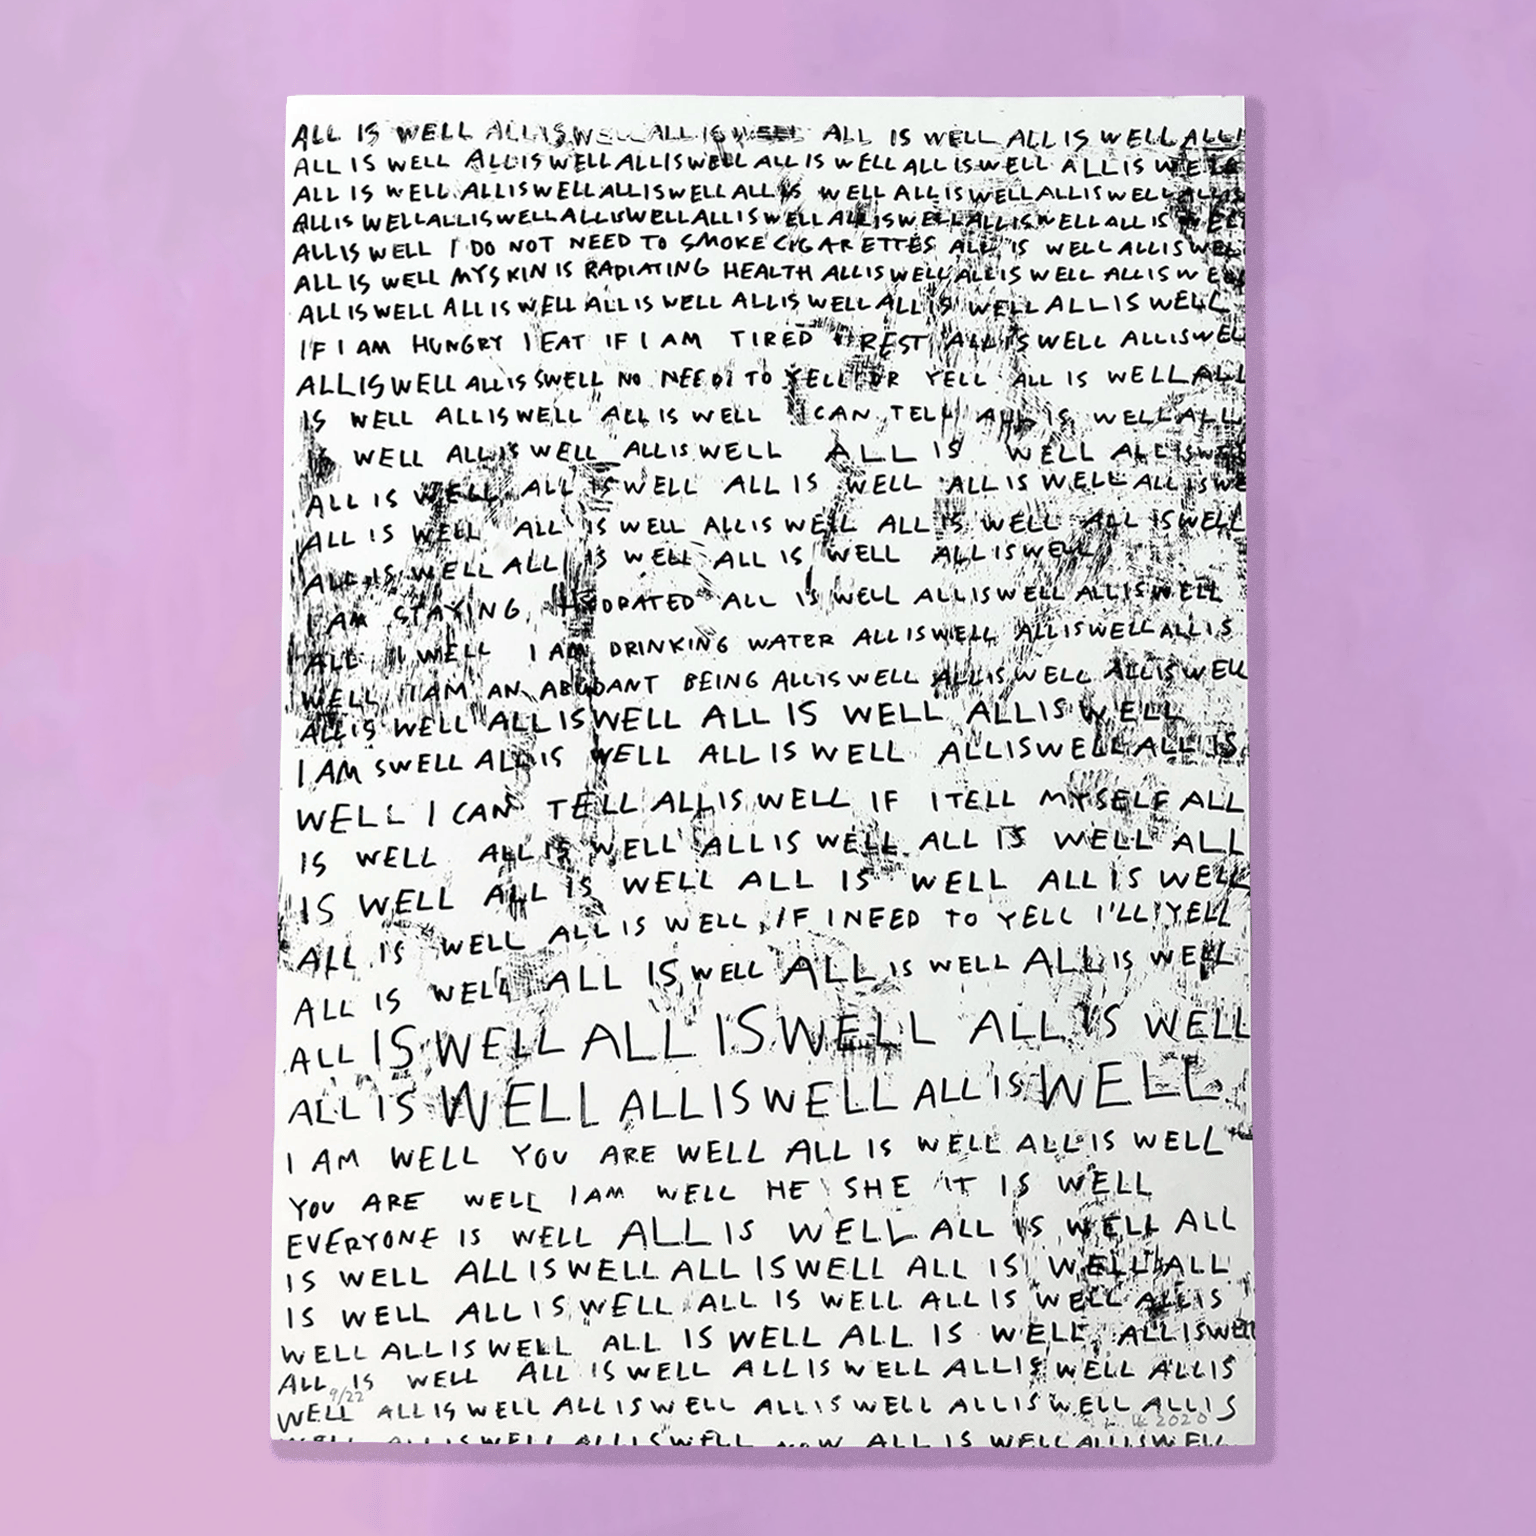 ALL IS WELL ALL IS WELL ALL IS WELL ALL IS WELL ALL IS WELL ALL
ALL IS WELL ALL IS WELL ALL IS WELL ALL IS WELL ALL IS WELL ALL IS WELL
ALL IS WELL ALL IS WELL ALL IS WELL ALL IS WELL ALL IS WELL ALL IS WELL ALL IS
ALL IS WELL ALL IS WELL ALL IS WELL ALL IS WELL ALL IS WELL ALL IS WELL ALL IS WELL
ALL IS WELL I DO NOT NEED TO SMOKE CIGARETTES ALL IS WELL ALL IS WEL
ALL IS WELL MY SKIN IS RADIATING HEALTH ALL IS WELL ALL IS WELL ALL IS WE
ALL IS WELL ALL IS WELL ALL IS WELL ALL IS WELL ALL IS WELL ALL IS WELL
IF I AM HUNGRY I EAT IF I AM TIRED I REST ALL IS WELL ALL IS WEL
ALL IS WELL ALL IS SWELL NO NEED TO YELL OR YELL ALL IS WELL ALL
IS WELL ALL IS WELL ALL IS WELL I CAN TELL ALL IS WELL ALL
IS WELL ALL IS WELL ALL IS WELL ALL IS WELL ALL IS WE
ALL IS WELL ALL IS WELL ALL IS WELL ALL IS WELL ALL IS WE
ALL IS WELL ALL IS WELL ALL IS WELL ALL IS WELL ALL IS WELL
ALL IS WELL ALL IS WELL ALL IS WELL ALL IS WELL
I AM STAYING HYDRATED ALL IS WELL ALL IS WELL ALL IS WELL
ALL I WELL I AM DRINKING WATER ALL IS WELL ALL IS WELL ALL IS
WELL I AM AN ABUDANT BEING ALL IS WELL ALL IS WELL ALL IS WELL
ALL IS WELL ALL IS WELL ALL IS WELL ALL IS WELL
I AM SWELL ALL IS WELL ALL IS WELL ALL IS WELL ALL IS
WELL I CAN TELL ALL IS WELL IF I TELL MYSELF ALL
IS WELL ALL IS WELL ALL IS WELL ALL IS WELL ALL
IS WELL ALL IS WELL ALL IS WELL ALL IS WELL
ALL IS WELL ALL IS WELL IF I NEED TO YELL I'LL YELL
ALL IS WELL ALL IS WELL ALL IS WELL ALL IS WELL
ALL IS WELL ALL IS WELL ALL IS WELL
ALL IS WELL ALL IS WELL ALL IS WELL
I AM WELL YOU ARE WELL ALL IS WELL ALL IS WELL
YOU ARE WELL I AM WELL HE SHE IT IS WELL
EVERYONE IS WELL ALL IS WELL ALL IS WELL ALL
IS WELL ALL IS WELL ALL IS WELL ALL IS WELL ALL
IS WELL ALL IS WELL ALL IS WELL ALL IS WELL ALL IS
WELL ALL IS WELL ALL IS WELL ALL IS WELL ALL IS WELL
ALL IS WELL ALL IS WELL ALL IS WELL ALL IS WELL ALL IS
9/22
WELL ALL IS WELL ALL IS WELL ALL IS WELL ALL IS WELL ALL IS
2020
WELL ALL IS WELL ALL IS WELL NOW ALL IS WELL ALL IS WELL